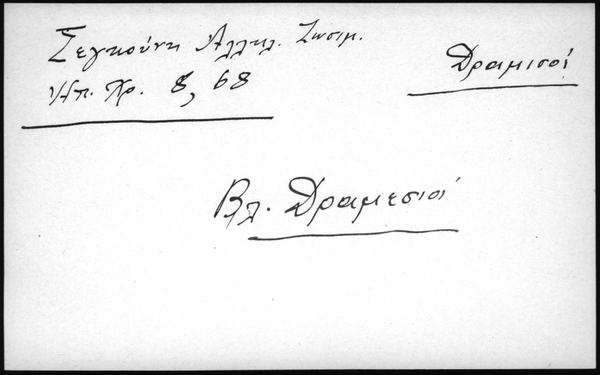 Σεγκούνη Αλληλ. Ζωσιμ.
Ηπ. Χρ. 8, 68
Δραμισοί
Βλ. Δραμεσιοί